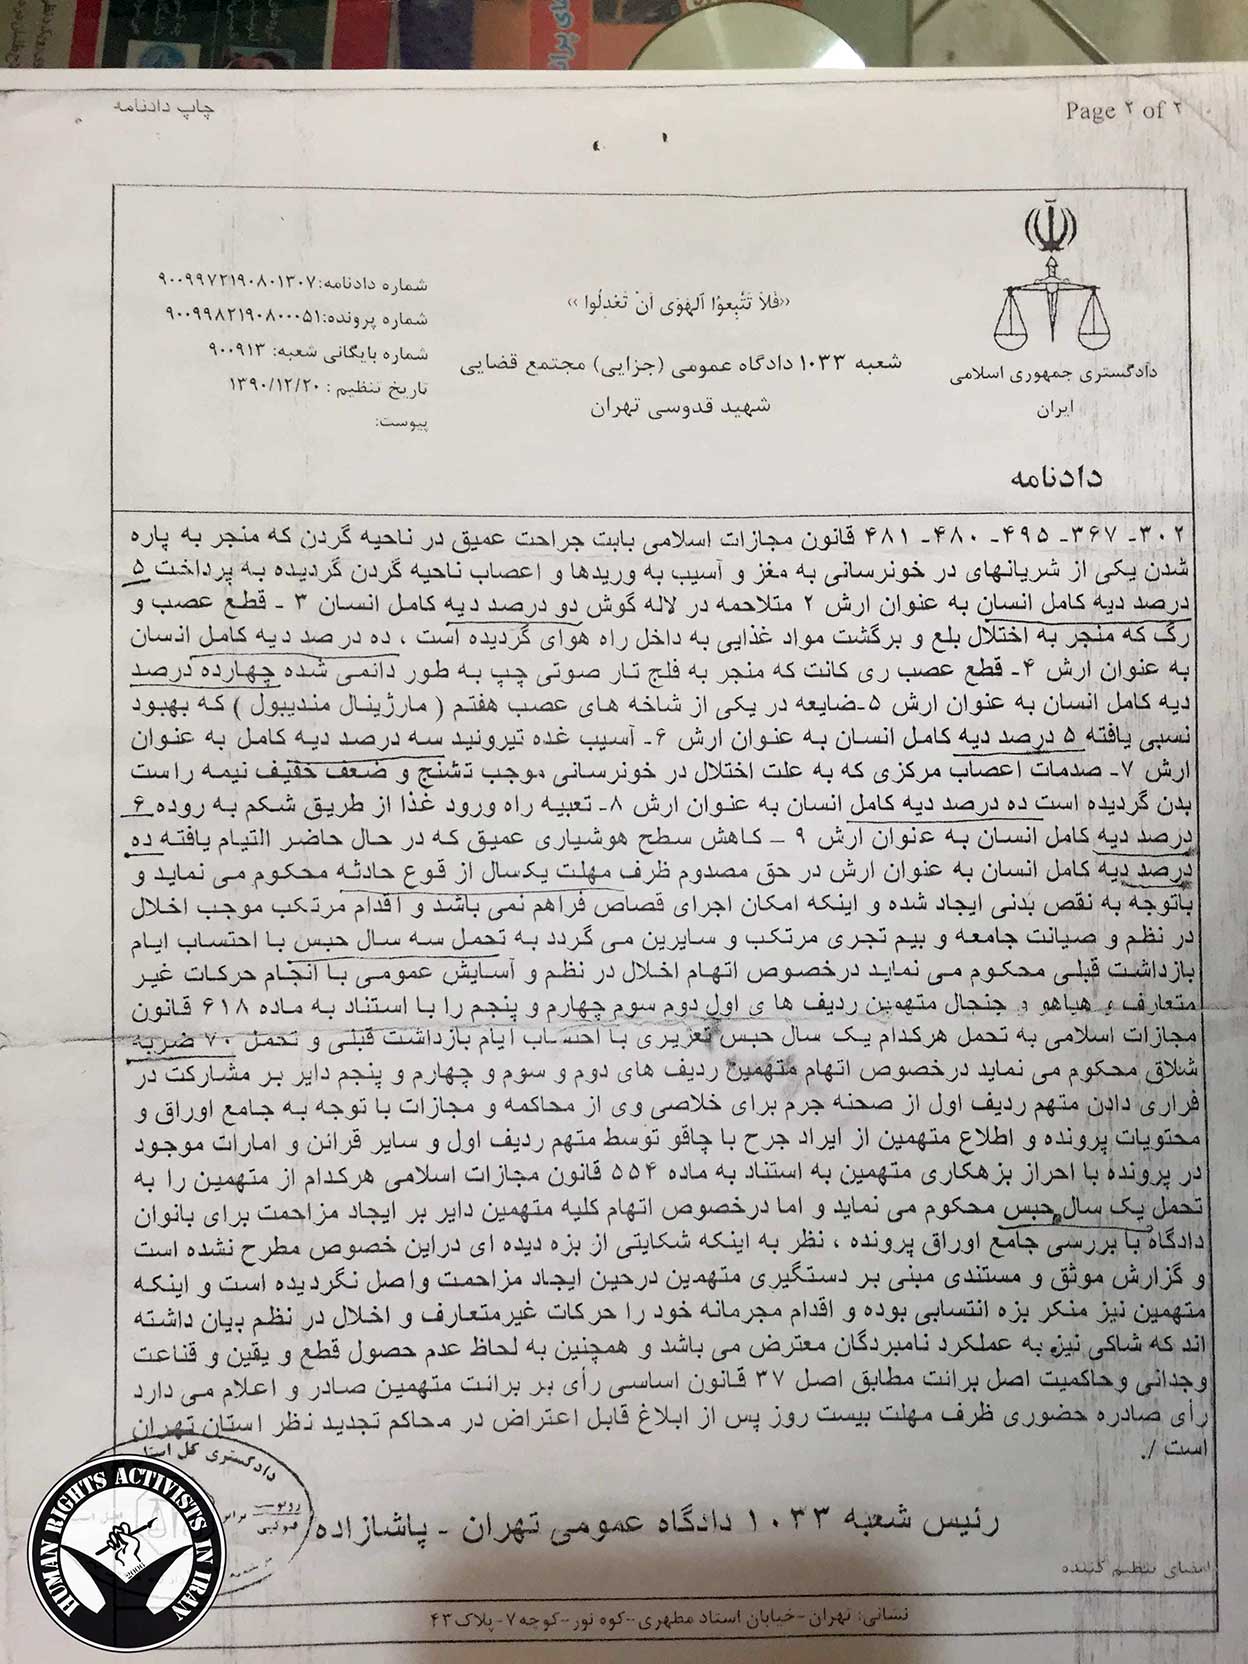 چاپ دادنامه
Page ۲ of ۲
شماره دادنامه:۹۰۰۹۹۷۲۱۹۰۸۰۱۳۰۷
شماره پرونده:۹۰۰۹۹۸۲۱۹۰۸۰۰۰۵۱
شماره بایگانی شعبه: ۹۰۰۹۱۳
تاریخ تنظیم : ۱۳۹۰/۱۲/۲۰
پیوست:
‹‹فَلاَ تَتَّبِعوُا اَلهَوَی اَنْ تَعْدِلُوا ››
شعبه ۱۰۳۳ دادگاه عمومی (جزایی) مجتمع قضایی
شهید قدوسی تهران
دادگستری جمهوری اسلامی
ایران
دادنامه
۳۰۲- ۳۶۷- ۴۹۵- ۴۸۰- ۴۸۱ قانون مجازات اسلامی بابت جراحت عمیق در ناحیه گردن که منجر به پاره
شدن یکی از شریانهای در خونرسانی به مغز و آسیب به وریدها و اعصاب ناحیه گردن گردیده به پرداخت ۵
درصد دیه کامل انسان به عنوان ارش ۲ متلاحمه در لاله گوش دو درصد دیه کامل انسان ۳ - قطع عصب و
رگ که منجر به اختلال بلع و برگشت مواد غذایی به داخل راه هوای گردیده است ، ده درصد دیه کامل انسان
به عنوان ارش ۴- قطع عصب ری کانت که منجر به فلج تار صوتی چپ به طور دائمی شده چهارده درصد
دیه کامل انسان به عنوان ارش ۵-ضایعه در یکی از شاخه های عصب هفتم ( مارژینال مندیبول ) که بهبود
نسبی یافته ۵ درصد دیه کامل انسان به عنوان ارش ۶- آسیب غده تیرونید سه درصد دیه کامل به عنوان
ارش ۷- صدمات اعصاب مرکزی که به علت اختلال در خونرسانی موجب تشنج و ضعف خفیف نیمه راست
بدن گردیده است ده درصد دیه کامل انسان به عنوان ارش ۸- تعبیه راه ورود غذا از طریق شکم به روده ۶
درصد دیه کامل انسان به عنوان ارش ۹ – کاهش سطح هوشیاری عمیق که در حال حاضر التیام یافته ده
درصد دیه کامل انسان به عنوان ارش در حق مصدوم ظرف مهلت یکسال از قوع حادثه محکوم می نماید و
باتوجه به نقص بدنی ایجاد شده و اینکه امکان اجرای قصاص فراهم نمی باشد و اقدام مرتکب موجب اخلال
در نظم و صیانت جامعه و بیم تجری مرتکب و سایرین می گردد به تحمل سه سال حبس با احتساب ایام
بازداشت قبلی محکوم می نماید درخصوص اتهام اخلال در نظم و آسایش عمومی با انجام حرکات غیر
متعارف ، هیاهو و جنجال متهمین ردیف های اول دوم سوم چهارم و پنجم را با استناد به ماده ۶۱۸ قانون
مجازات اسلامی به تحمل هرکدام یک سال حبس تعزیری با احتساب ایام بازداشت قبلی و تحمل ۷۰ ضربه
شلاق محکوم می نماید درخصوص اتهام متهمین ردیف های دوم و سوم و چهارم و پنجم دایر بر مشارکت در
فراری دادن متهم ردیف اول از صحنه جرم برای خلاصی وی از محاکمه و مجازات با توجه به جامع اوراق و
محتویات پرونده و اطلاع متهمین از ایراد جرح با چاقو توسط متهم ردیف اول و سایر قرائن و امارات موجود
در پرونده با احراز بزهکاری متهمین به استناد به ماده ۵۵۴ قانون مجازات اسلامی هرکدام از متهمین را به
تحمل یک سال حبس محکوم می نماید و اما درخصوص اتهام کلیه متهمین دایر بر ایجاد مزاحمت برای بانوان
دادگاه با بررسی جامع اوراق پرونده ، نظر به اینکه شکایتی از بزه دیده ای دراین خصوص مطرح نشده است
و گزارش موثق و مستندی مبنی بر دستگیری متهمین درحین ایجاد مزاحمت واصل نگردیده است و اینکه
متهمین نیز منکر بزه انتسابی بوده و اقدام مجرمانه خود را حرکات غیرمتعارف و اخلال در نظم بیان داشته
اند که شاکی نیز به عملکرد نامبردگان معترض می باشد و همچنین به لحاظ عدم حصول قطع و یقین و قناعت
وجدانی وحاکمیت اصل برائت مطابق اصل ۳۷ قانون اساسی رأی بر برائت متهمین صادر و اعلام می دارد
رأی صادره حضوری ظرف مهلت بیست روز پس از ابلاغ قابل اعتراض در محاکم تجدید نظر استان تهران
است /.
دادگستری کل استا
رئیس شعبه ۱۰۳۳ دادگاه عمومی تهران - پاشازاده
امضای تنظیم کننده
نشانی: تهران-خیابان استاد مطهری--کوه نور-کوچه۷-پلاک۴۳
HUMAN RIGHTS ACTIVISTS IN IRAN
2006